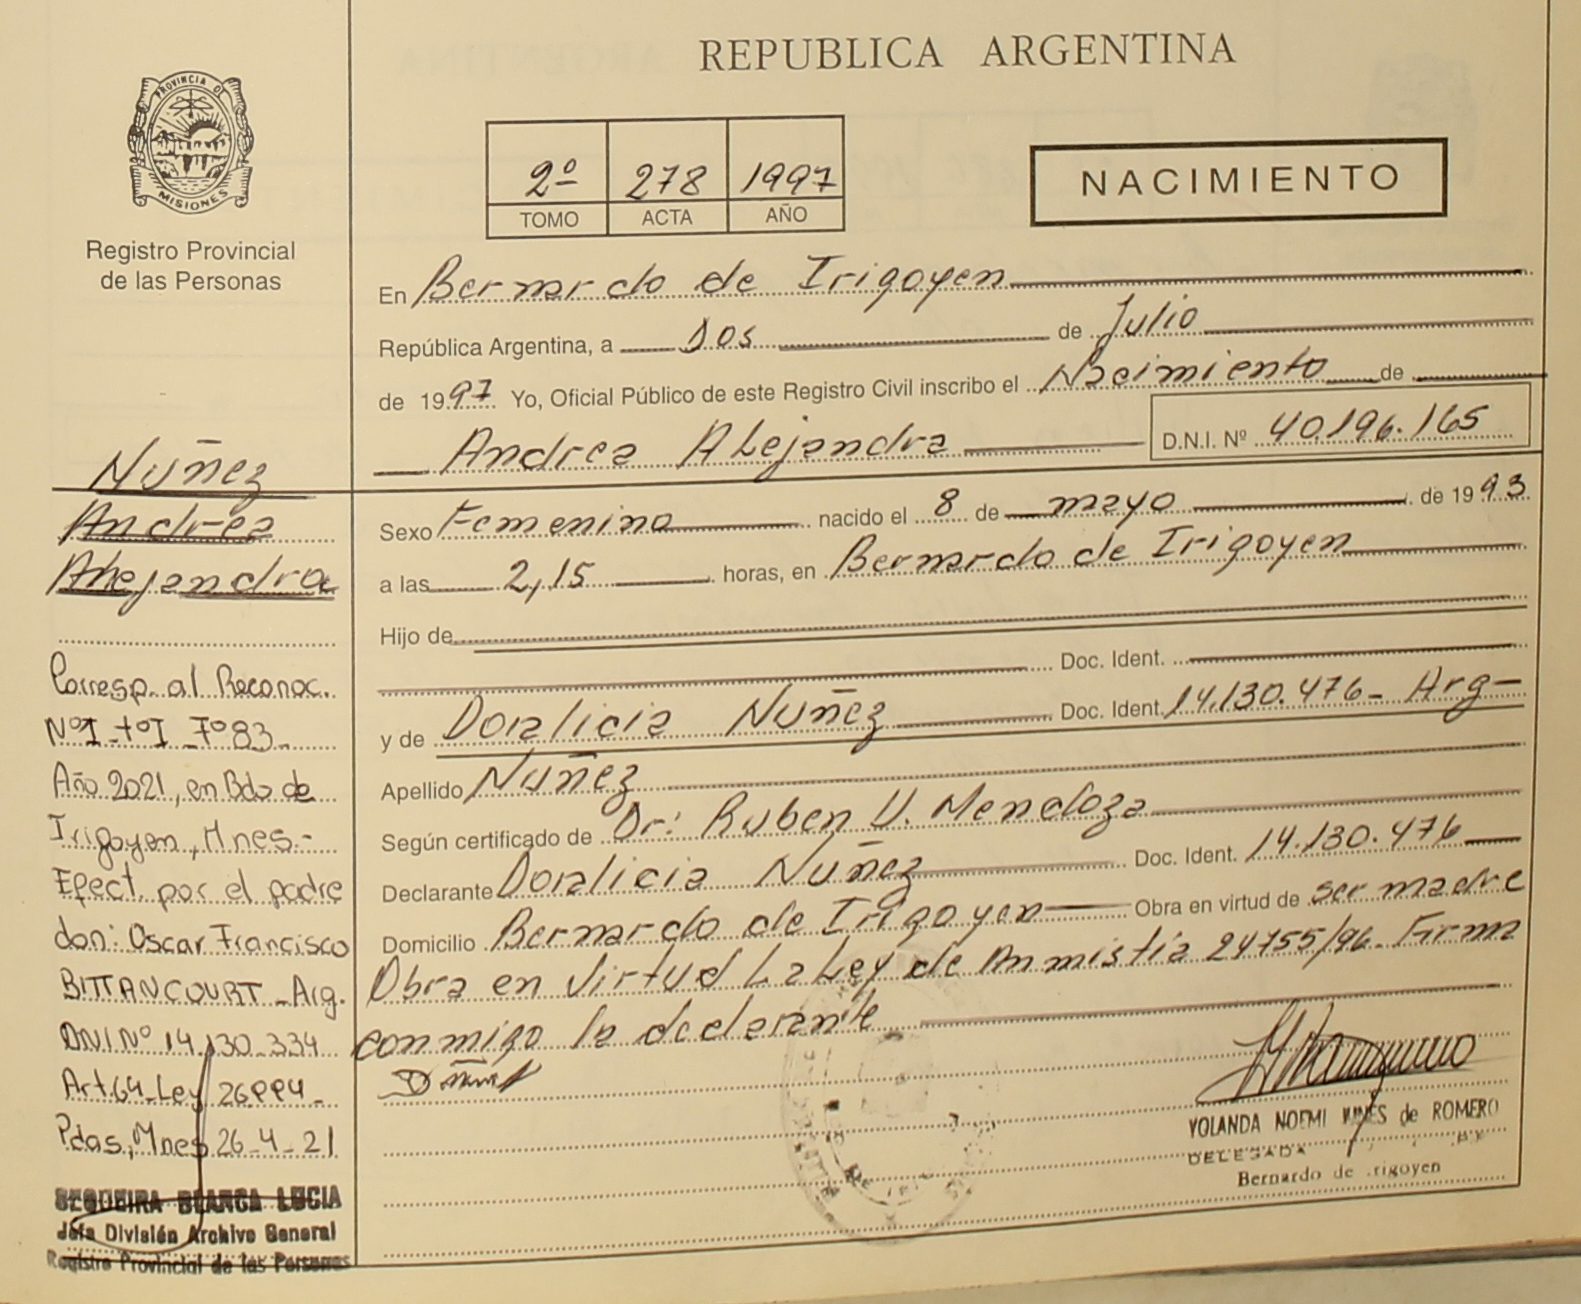 REPUBLICA ARGENTINA
PROVINCIA DE
MISIONES
Registro Provincial
de las Personas
2º 278 1997
TOMO ACTA AÑO
NACIMIENTO
En Bernardo de Irigoyen
República Argentina, a Dos de Julio
de 1997 Yo, Oficial Público de este Registro Civil inscribo el Nacimiento de
Andrea Alejandra D.N.I. Nº 40.196.165
Sexo Femenino nacido el 8 de mayo de 1993
a las 2,15 horas, en Bernardo de Irigoyen
Hijo de
Doc. Ident.
y de Doralicia Nuñez Doc. Ident. 14.130.476- Arg-
Apellido Nuñez
Según certificado de Dr: Ruben V. Mendoza
Declarante Doralicia Nuñez Doc. Ident. 14.130.476
Domicilio Bernardo de Irigoyen Obra en virtud de ser madre
Obra en Virtud La Ley de Anmistia 24755/96- Firma
conmigo la declarante
YOLANDA NOEMI de ROMERO
DELEGADA
Bernardo de Irigoyen
Nuñez
Andrea
Alejandra
Corresp. al Reconoc.
NºI-tºI-Fº83-
Año 2021, en Bdo de
Irigoyen, Mnes.-
Efect. por el padre
don: Oscar Francisco
BITTANCOURT-Arg.
DNI Nº 14.130.334
Art.64-Ley 26994-
Pdas, Mnes 26-4-21
SEQUEIRA BLANCA LUCIA
Jefa División Archivo General
Registro Provincial de las Personas